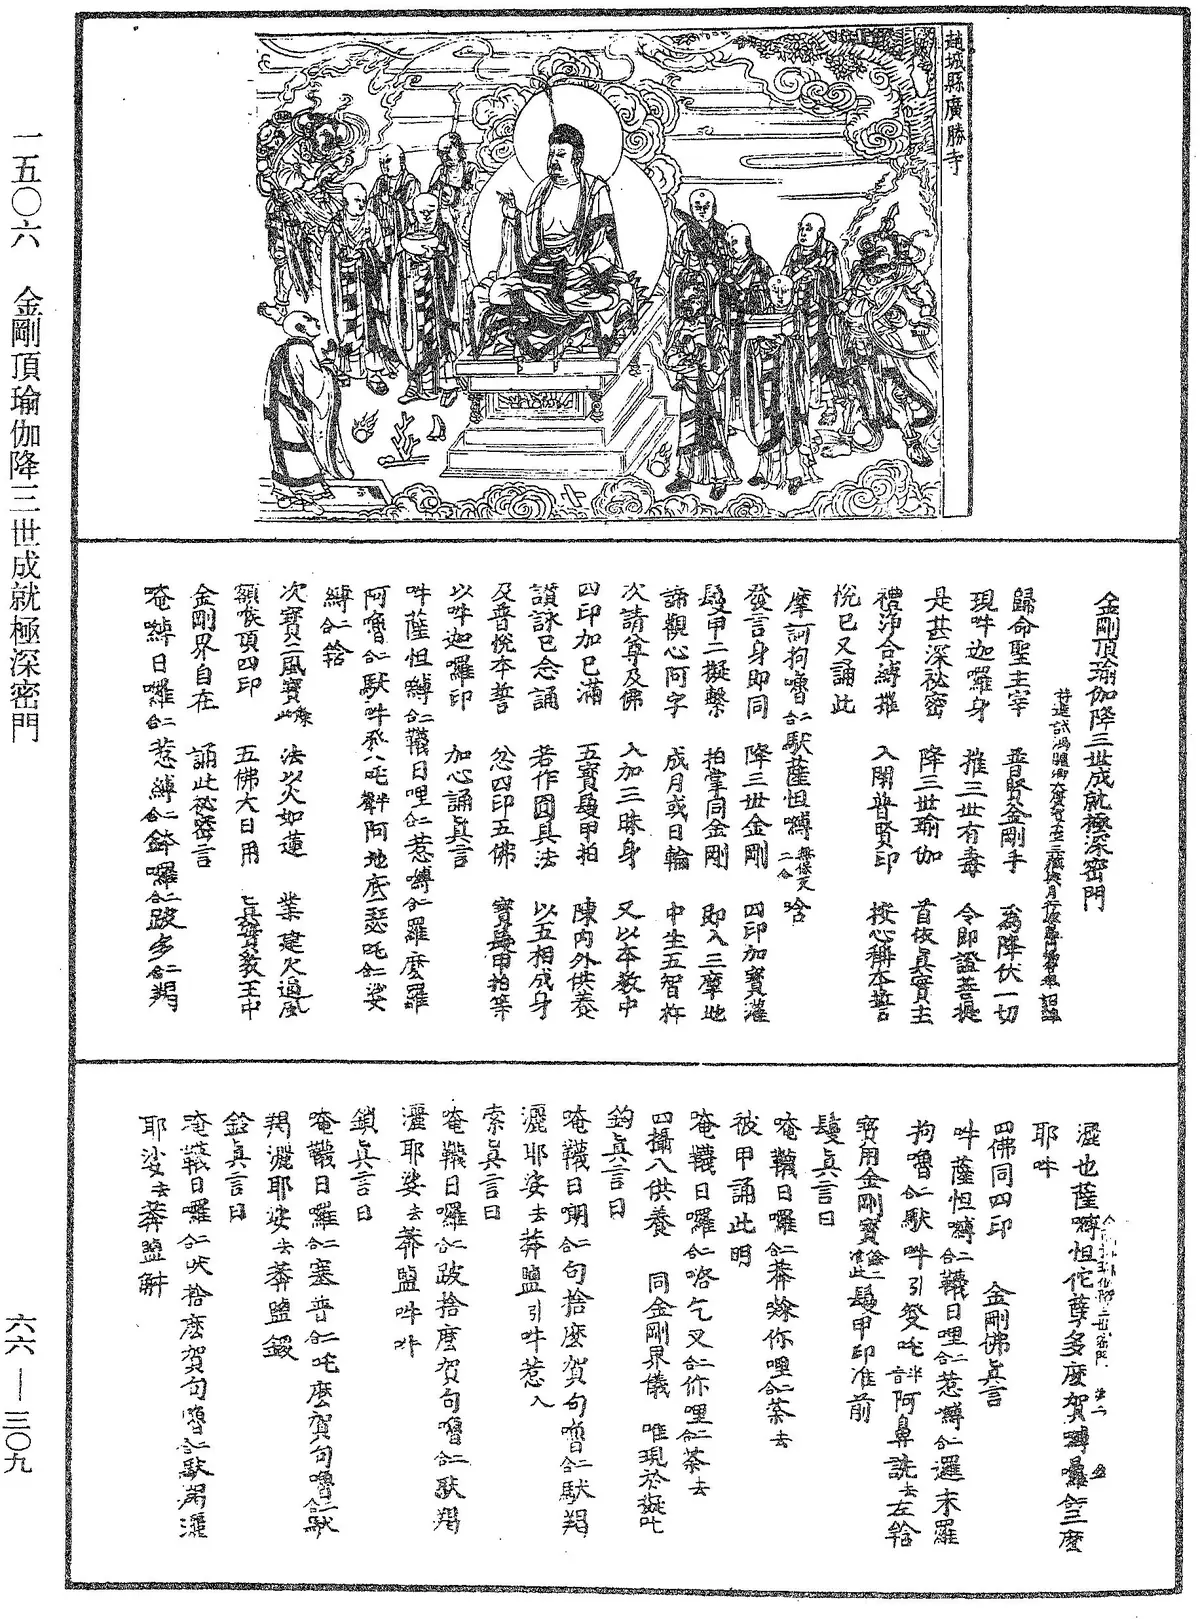 趙城縣廣勝寺
一五〇六　金剛頂瑜伽降三世成就極深密門
六六—三〇九
金剛頂瑜伽降三世成就極深密門
歸命聖主宰　普賢金剛手　為降伏一切
現吽迦羅身　摧三世有毒　令即證菩提
是甚深祕密　降三世瑜伽　首依真實主
禮淨合縛摧　入開普賢印　按心稱本誓
悅已又誦此
摩訶拘嚕二合馱薩怛嚩無保反二合唅
發言身即同　降三世金剛　四印加寶灌
鬘甲二擬繫　拍掌同金剛　即入三摩地
諦觀心阿字　成月或日輪　中生五智杵
次請尊及佛　入加三昧身　又以本教中
四印加已滿　五寶鬘甲拍　陳內外供養
讚詠已念誦　若作圓具法　以五相成身
及普悅本誓　忿四印五佛　寶鬘甲拍等
以吽迦羅印　加心誦真言
吽薩怛縛二合韈日哩二合惹嚩二合羅麼羅
阿嚕二合馱吽癹八吒半聲阿地底瑟吒二合娑
縛二合唅
次寶二風寶　法以火如蓮　業建火過風
額喉頂四印　五佛大日用　真實教王中
金剛界自在　誦此祕密言
唵嚩日囉二合惹縛二合鉢囉二合跛多二合羯
灑也薩嚩怛佗孽多麼賀嚩曩三麼
耶吽
四佛同四印　金剛佛真言
吽薩怛嚩二合韈日哩二合惹嚩二合邏末羅
拘嚕二合馱吽引癹吒半音阿鼻詵去左唅
寶用金剛寶　鬘甲印准前
鬘真言曰
唵韈日囉二合莽攞你哩二合荼去
被甲誦此明
唵韈日囉二合咯乞叉二合你哩二合荼去
四攝八供養　同金剛界儀　唯現於凝吒
鉤真言曰
唵韈日朗二合句捨麼賀句嚕二合馱羯
灑耶娑去莽鹽引吽惹入
索真言曰
唵韈日囉二合跛捨麼賀句嚕二合馱羯
灑耶娑去莽鹽吽吽
鎖真言曰
唵韈日囉二合塞普二合吒麼賀句嚕二合馱
羯灑耶娑去莽鹽鑁
鈴真言曰
唵韈日囉二合吠捨麼賀句嚕二合馱羯灑
耶娑去莽鹽斛